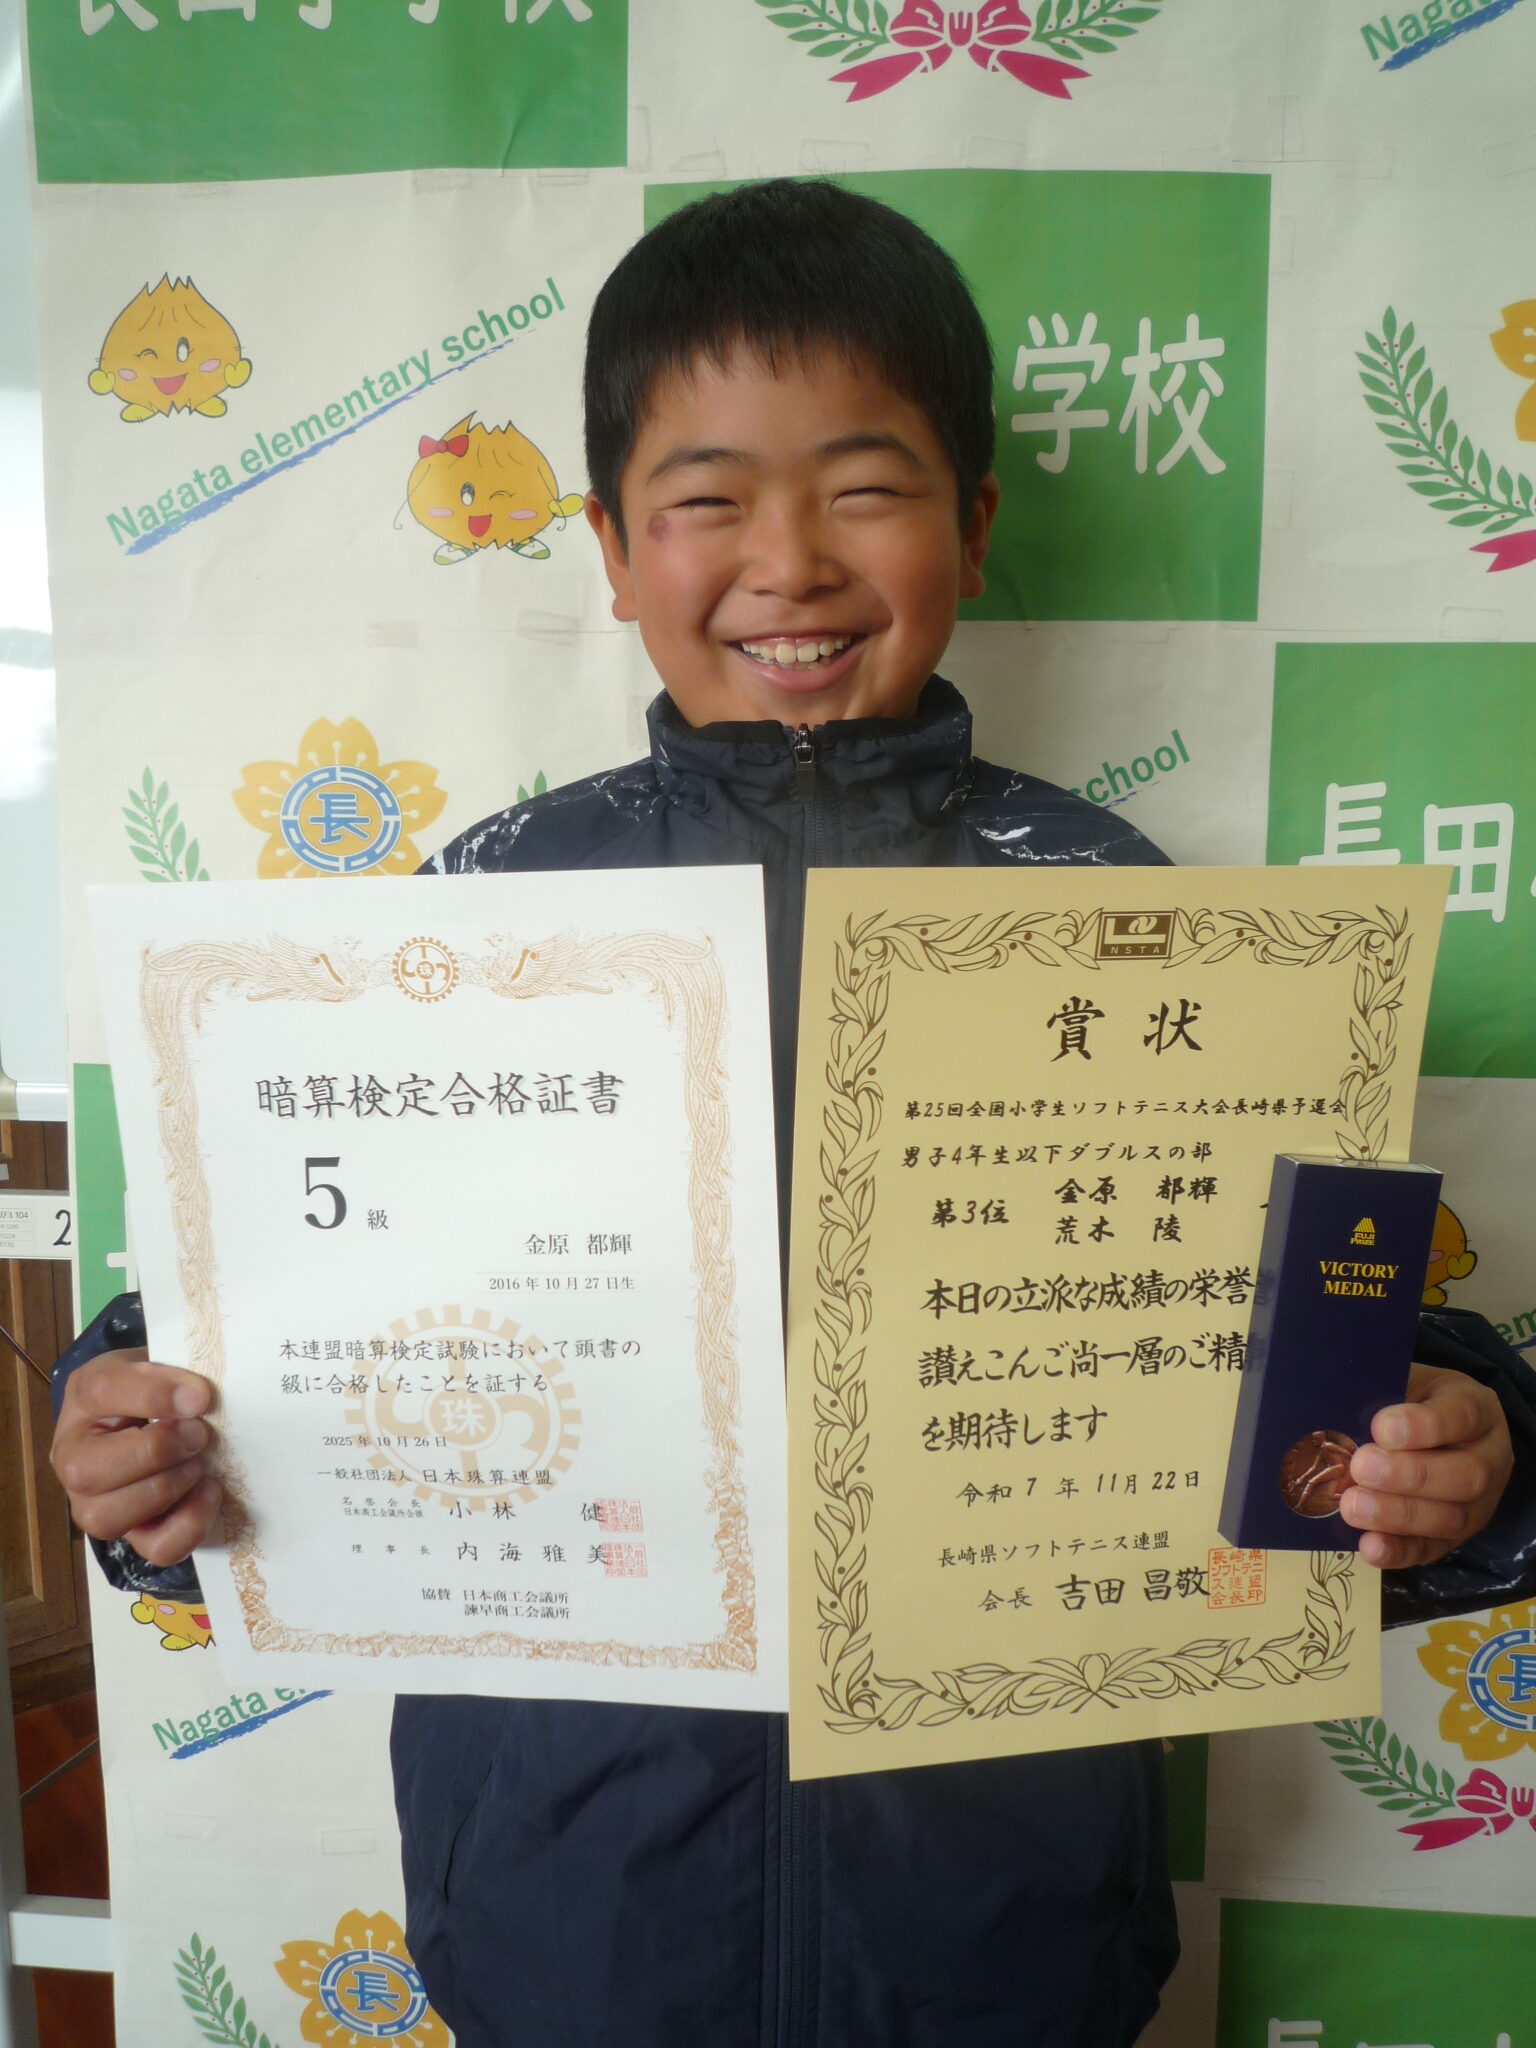 長田小学校
Nagata
Nagata elementary school
学校
school
長
長田
暗算検定合格証書
5 級
金原 都輝
2016年10月27日生
本連盟暗算検定試験において頭書の
級に合格したことを証する
2025年10月26日
一般社団法人 日本珠算連盟
名誉会長
日本商工会議所会頭 小林 健
理事長 内海雅美
協賛 日本商工会議所
諫早商工会議所
珠
珠
NSTA
賞状
第25回全国小学生ソフトテニス大会長崎県予選会
男子4年生以下ダブルスの部
第3位 金原 都輝
荒木 陵
本日の立派な成績の栄誉
讃えこんご尚一層のご精
を期待します
令和7年11月22日
長崎県ソフトテニス連盟
会長 吉田昌敬
長崎県
ソフトテニ
ス連盟
会長印
FUJI
PRIZE
VICTORY
MEDAL
2
Nagata e
長